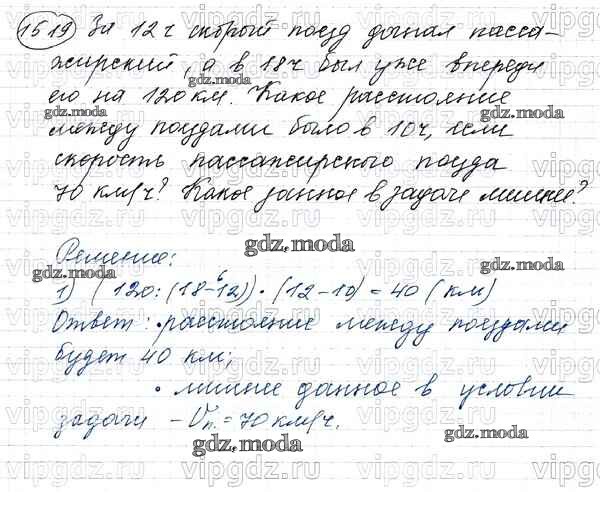 1519 За 12 ч скорый поезд догнал пасса-
жирский, а в 18 ч был уже впереди
его на 120 км. Какое расстояние
между поездами было в 10 ч, если
скорость пассажирского поезда
70 км/ч? Какое данное в задаче лишнее?
Решение:
1) (120 : (18-12)) · (12-10) = 40 (км)
Ответ: • расстояние между поездами
будет 40 км;
• лишнее данное в условии
задачи – Vп. = 70 км/ч.
gdz.moda
vipgdz.ru